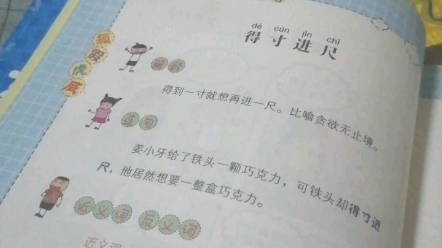 dé cùn jìn chǐ
得寸进尺
得到一寸就想再进一尺。比喻贪欲无止境。
姜小牙给了铁头一颗巧克力，可铁头却得寸进
尺，他居然想要一整盒巧克力。
近义词 反义词
近义词